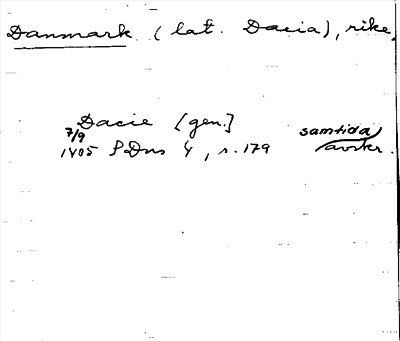 Danmark (lat. Dacia), rike.
Dacie [gen.] samtida
7/9
1405 SDns 4, s. 179 avskr.